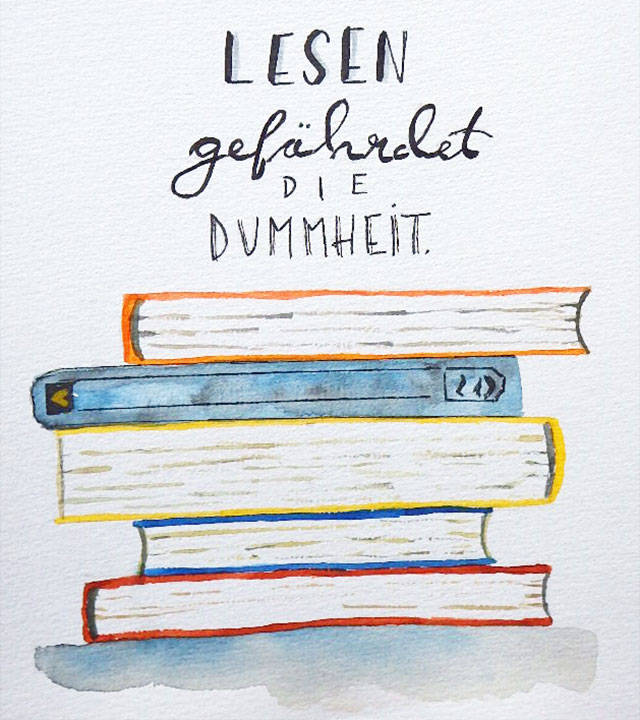 LESEN
gefährdet
DIE
DUMMHEIT.